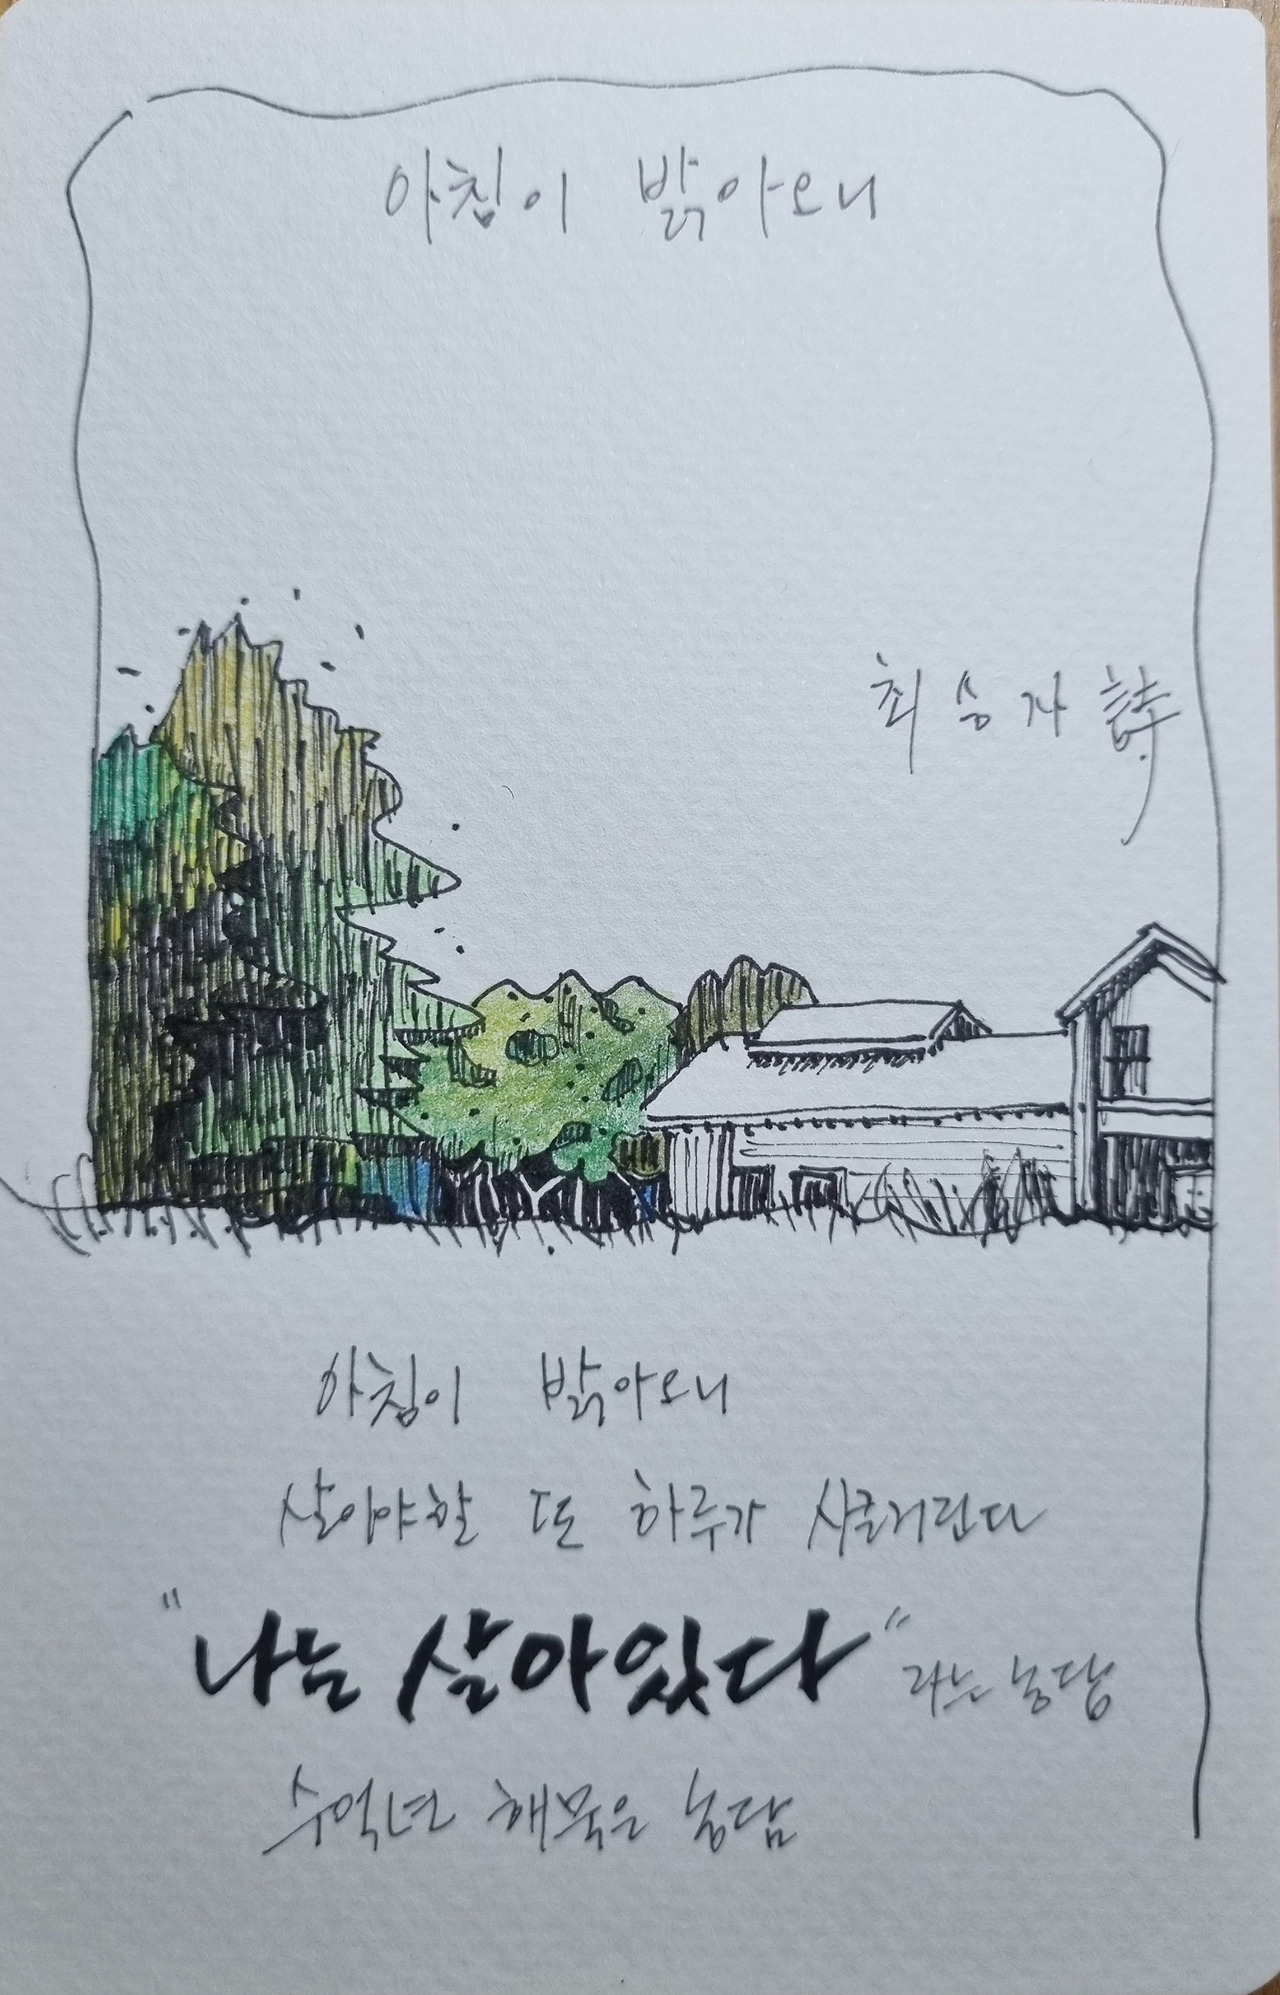 아침이 밝아오니
최승자 詩
아침이 밝아오니
살아야할 또 하루가 시큰거린다
"나는 살아있다"라는 농담
수억년 해묵은 농담